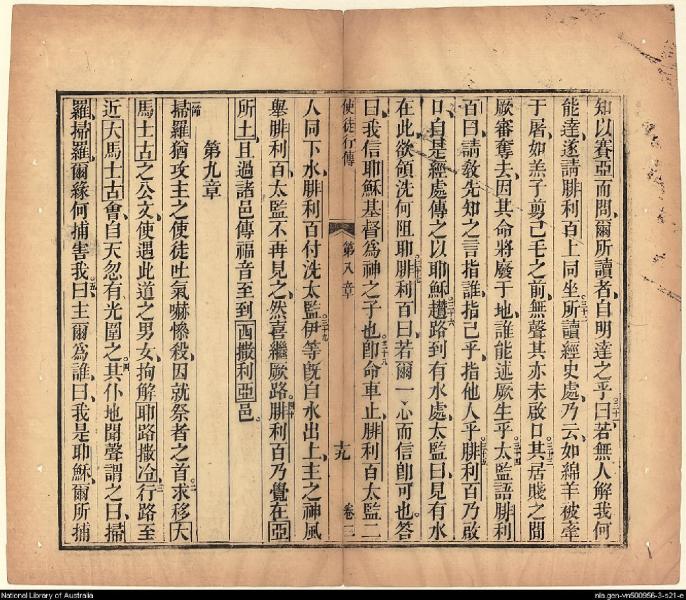 知以賽亞而問爾所讀者自明達之乎曰若無人解我何
能達遂請腓利百上同坐所讀經史處乃云如綿羊被牽
于屠如羔子剪己毛之前無聲其亦未啟口其居賤之間
厥審奪去因其命將廢于地誰能述厥生乎太監語腓利
百曰請教先知之言指誰指己乎指他人乎腓利百乃啟
口自是經處傳之以耶穌趲路到有水處太監曰見有水
在此欲領洗何阻耶腓利百曰若爾一心而信卽可也。答
曰我信耶穌基督為神之子也。卽命車止腓利百太監二
使徒行傳 第八章 十九 卷三
人同下水腓利百付洗太監。伊等旣自水出上主之神風
舉腓利百太監不再見之然喜繼厥路。腓利百乃覺在亞
所土且過諸邑傳福音至到西撒利亞邑。
第九章
掃羅猶攻主之使徒吐氣嚇慘殺因就祭者之首。求移大
馬土古之公文使遇此道之男女拘解耶路撒冷。行路至
近大馬土古會自天忽有光圍之。其仆地聞聲謂之曰掃
羅掃羅爾緣何捕害我。曰主爾為誰曰我是耶穌爾所捕
National Library of Australia
nla.gen-vn500956-3-s21-e